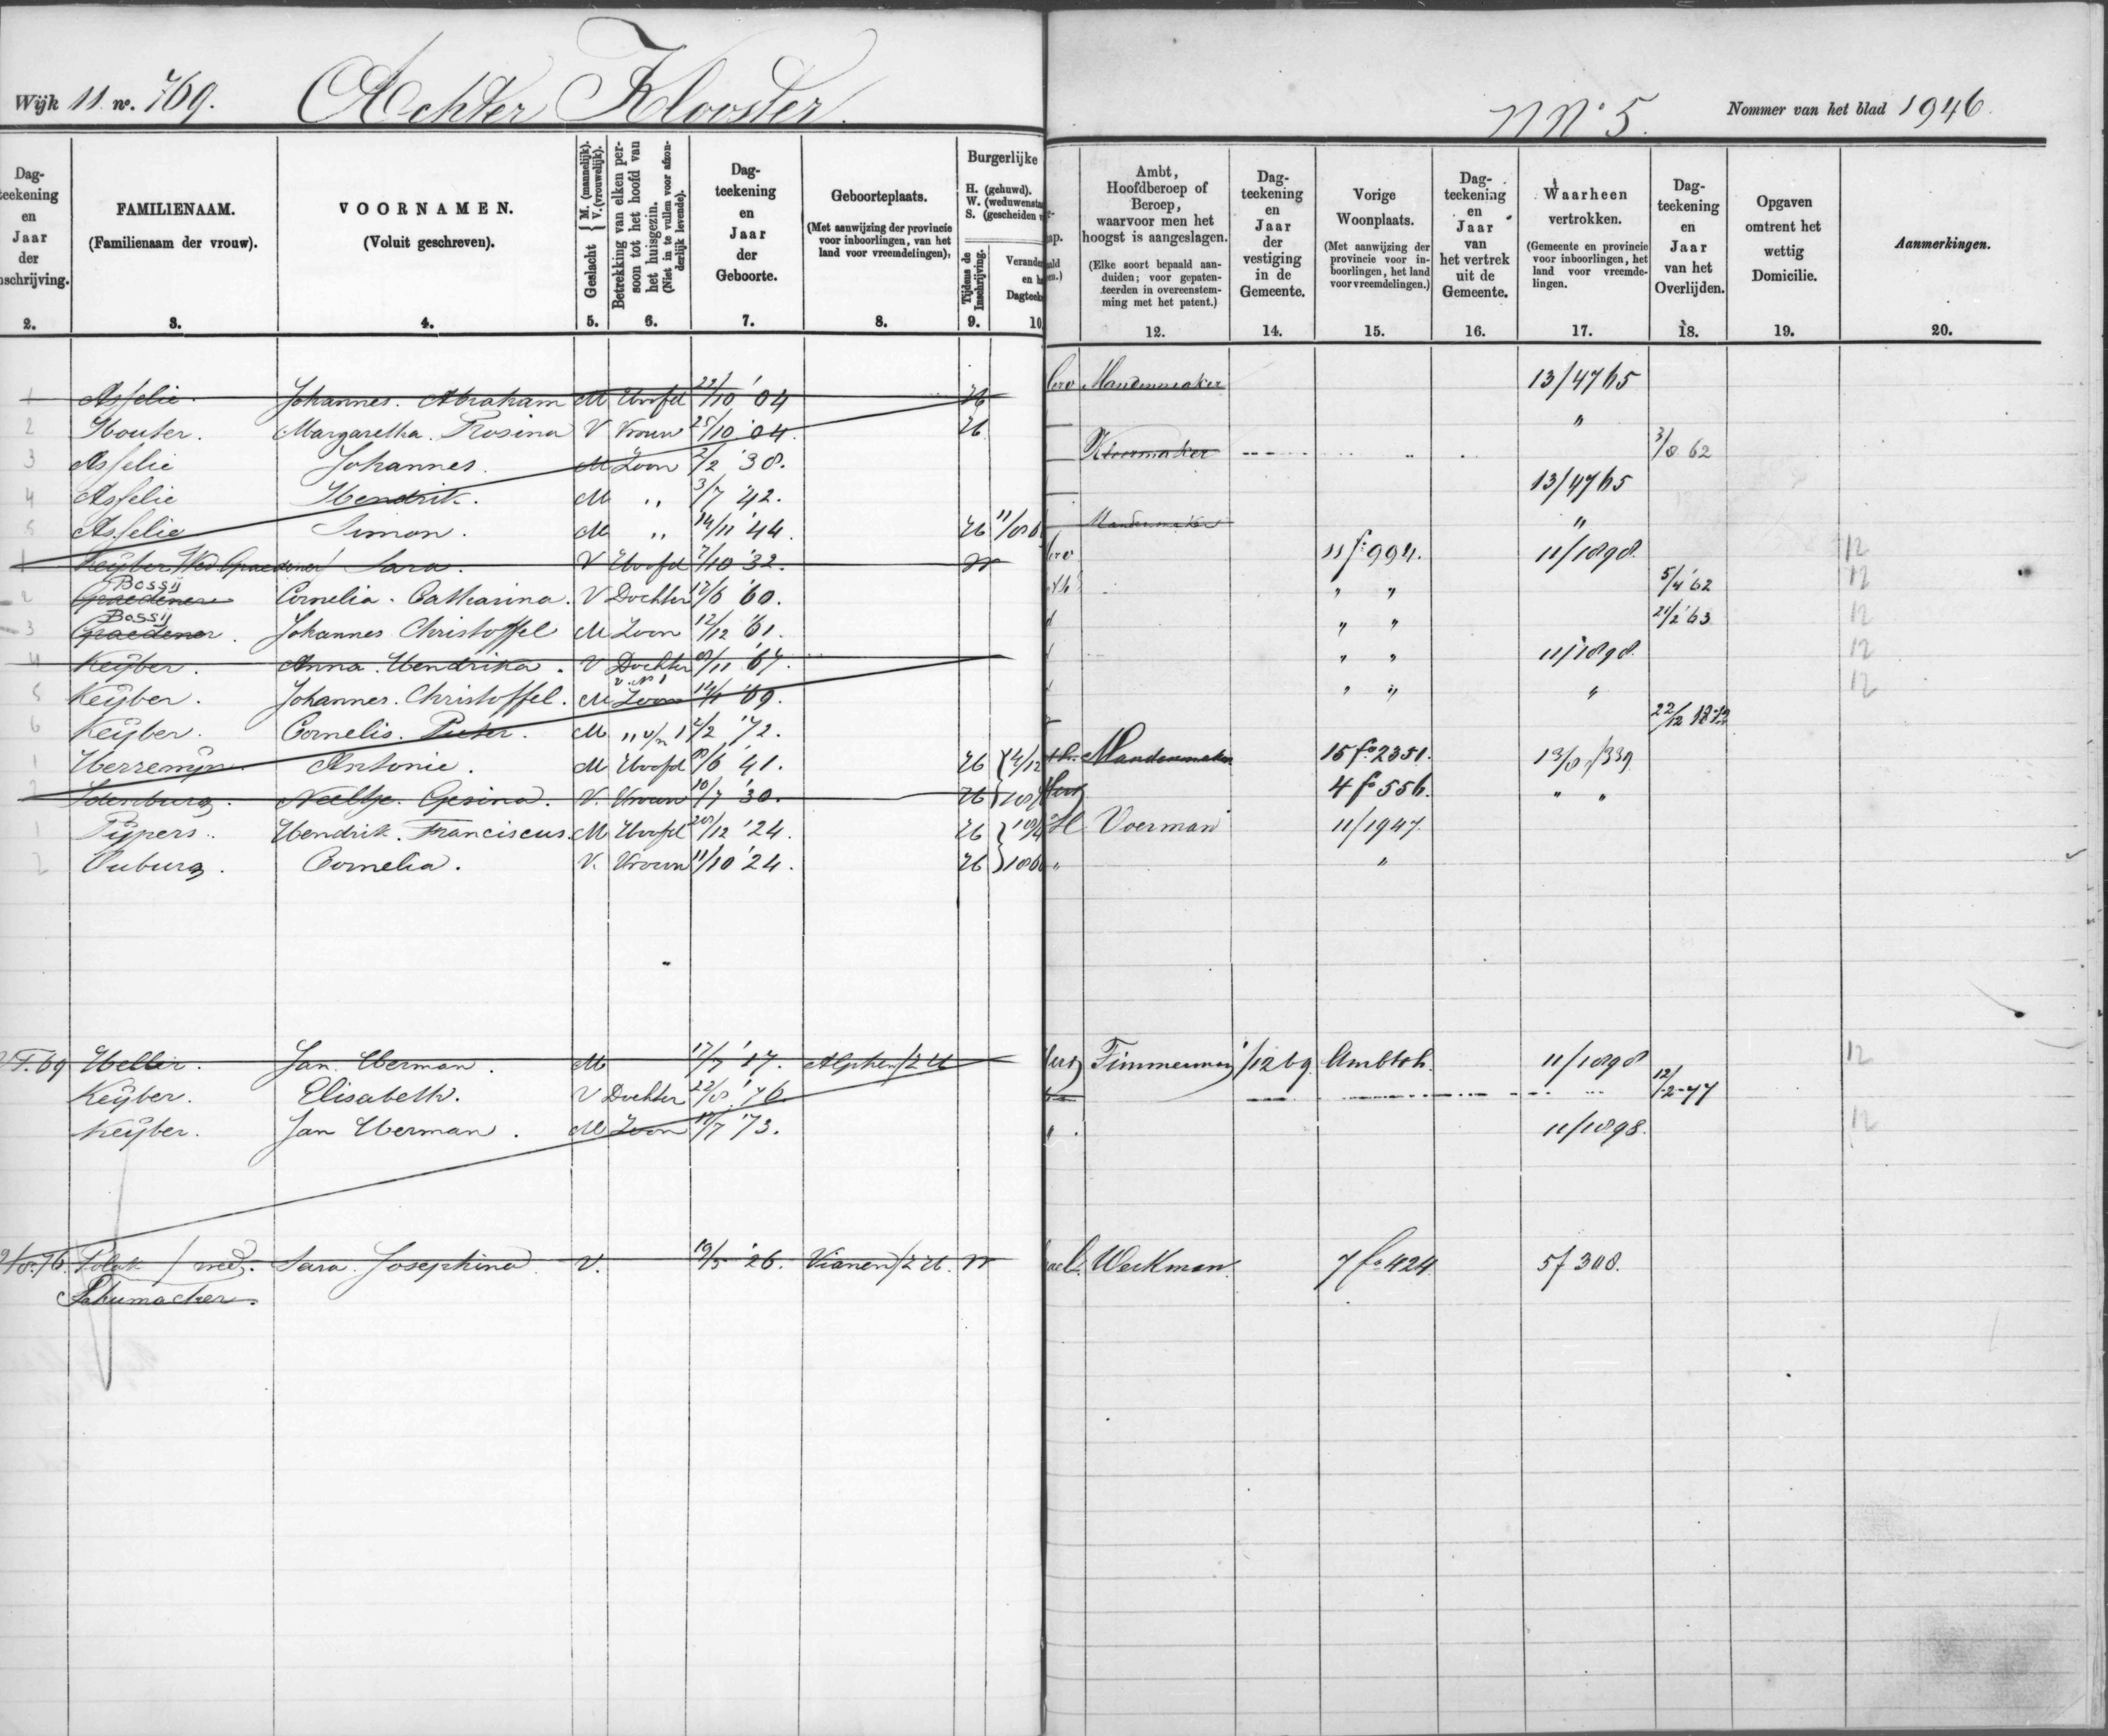 Wijk 11 no. 769. Achter Klooster. NNo 5. Nommer van het blad 1946.
Dagteekening en Jaar der inschrijving. 2.
FAMILIENAAM. (Familienaam der vrouw). 3.
VOORNAMEN. (Voluit geschreven). 4.
Geslacht { M. (mannelijk). V. (vrouwelijk). 5.
Betrekking van elken persoon tot het hoofd van het huisgezin. (Niet in te vullen voor afzonderlijk levende). 6.
Dagteekening en Jaar der Geboorte. 7.
Geboorteplaats. (Met aanwijzing der provincie voor inboorlingen, van het land voor vreemdelingen). 8.
Burgerlijke H. (gehuwd). W. (weduwensta S. (gescheiden v
Tijdens de Inschrijving. 9.
Verande en he Dagteek 10
Ambt, Hoofdberoep of Beroep, waarvoor men het hoogst is aangeslagen. (Elke soort bepaald aanduiden; voor gepatenteerden in overeenstemming met het patent.) 12.
Dagteekening en Jaar der vestiging in de Gemeente. 14.
Vorige Woonplaats. (Met aanwijzing der provincie voor inboorlingen, het land voor vreemdelingen.) 15.
Dagteekening en Jaar van het vertrek uit de Gemeente. 16.
Waarheen vertrokken. (Gemeente en provincie voor inboorlingen, het land voor vreemdelingen. 17.
Dagteekening en Jaar van het Overlijden. 18.
Opgaven omtrent het wettig Domicilie. 19.
Aanmerkingen. 20.
1 Asselie. Johannes. Abraham M Hoofd 22/10 '04 H Mandenmaker 13/4765
2 Houter. Margaretha. Rosina V Vrouw 25/10 '04. H "
3 Asselie Johannes. M Zoon 2/2 '38. 3/8 62
4 Asselie Hendrik. M " 3/7 '42. 13/4765
5 Asselie Simon. M " 14/11 '44. H 11/8 6 Mandenmaker "
1 Keijber Wed Graedener Sara. V Hoofd 7/10 '32. W 11 fo 994. 11/1898. 12
2 Graedener Bossij Cornelia. Catharina. V Dochter 12/6 '60. " " 5/4 '62 12
3 Graedener. Bossij Johannes Christoffel M Zoon 12/12 '61. " " 21/2 '63 12
4 Keijber. Anna. Hendrika. V Dochter 8/11 '67. " " 11/1898. 12
5 Keijber. Johannes. Christoffel. M Zoon v. No 1 '69. " " " 12
6 Keijber. Cornelis. Pieter. M " v/n 1 2/2 '72. 22/12
1 Herremijn. Antonie. M Hoofd 8/6 '41. H 14/12 Mandenmaker 15 fo 2351. 13/
2 Idenburg. Neeltje. Gesina. V. Vrouw 10/7 '30. H 4 fo 556. " "
1 Pijpers. Hendrik. Franciscus. M Hoofd 28/12 '24. H Voerman 11/1947.
2 Ouburg. Cornelia. V. Vrouw 11/10 '24. H "
Jan. Herman. M 17/7 '17. Alphen/ZH Timmerman 1/12 69. Ambtsh. 11/1898 12
Keijber. Elisabeth. V Dochter 22/8 '76. 12/-2-77
Keijber. Jan Herman. M Zoon 17/7 '73. 11/1898. 12
Polak / wed. Sara. Josephina V. 19/5 '26. Vianen/ZH. W Werkman. 7 fo 424. 5f 308.
Schumacher.